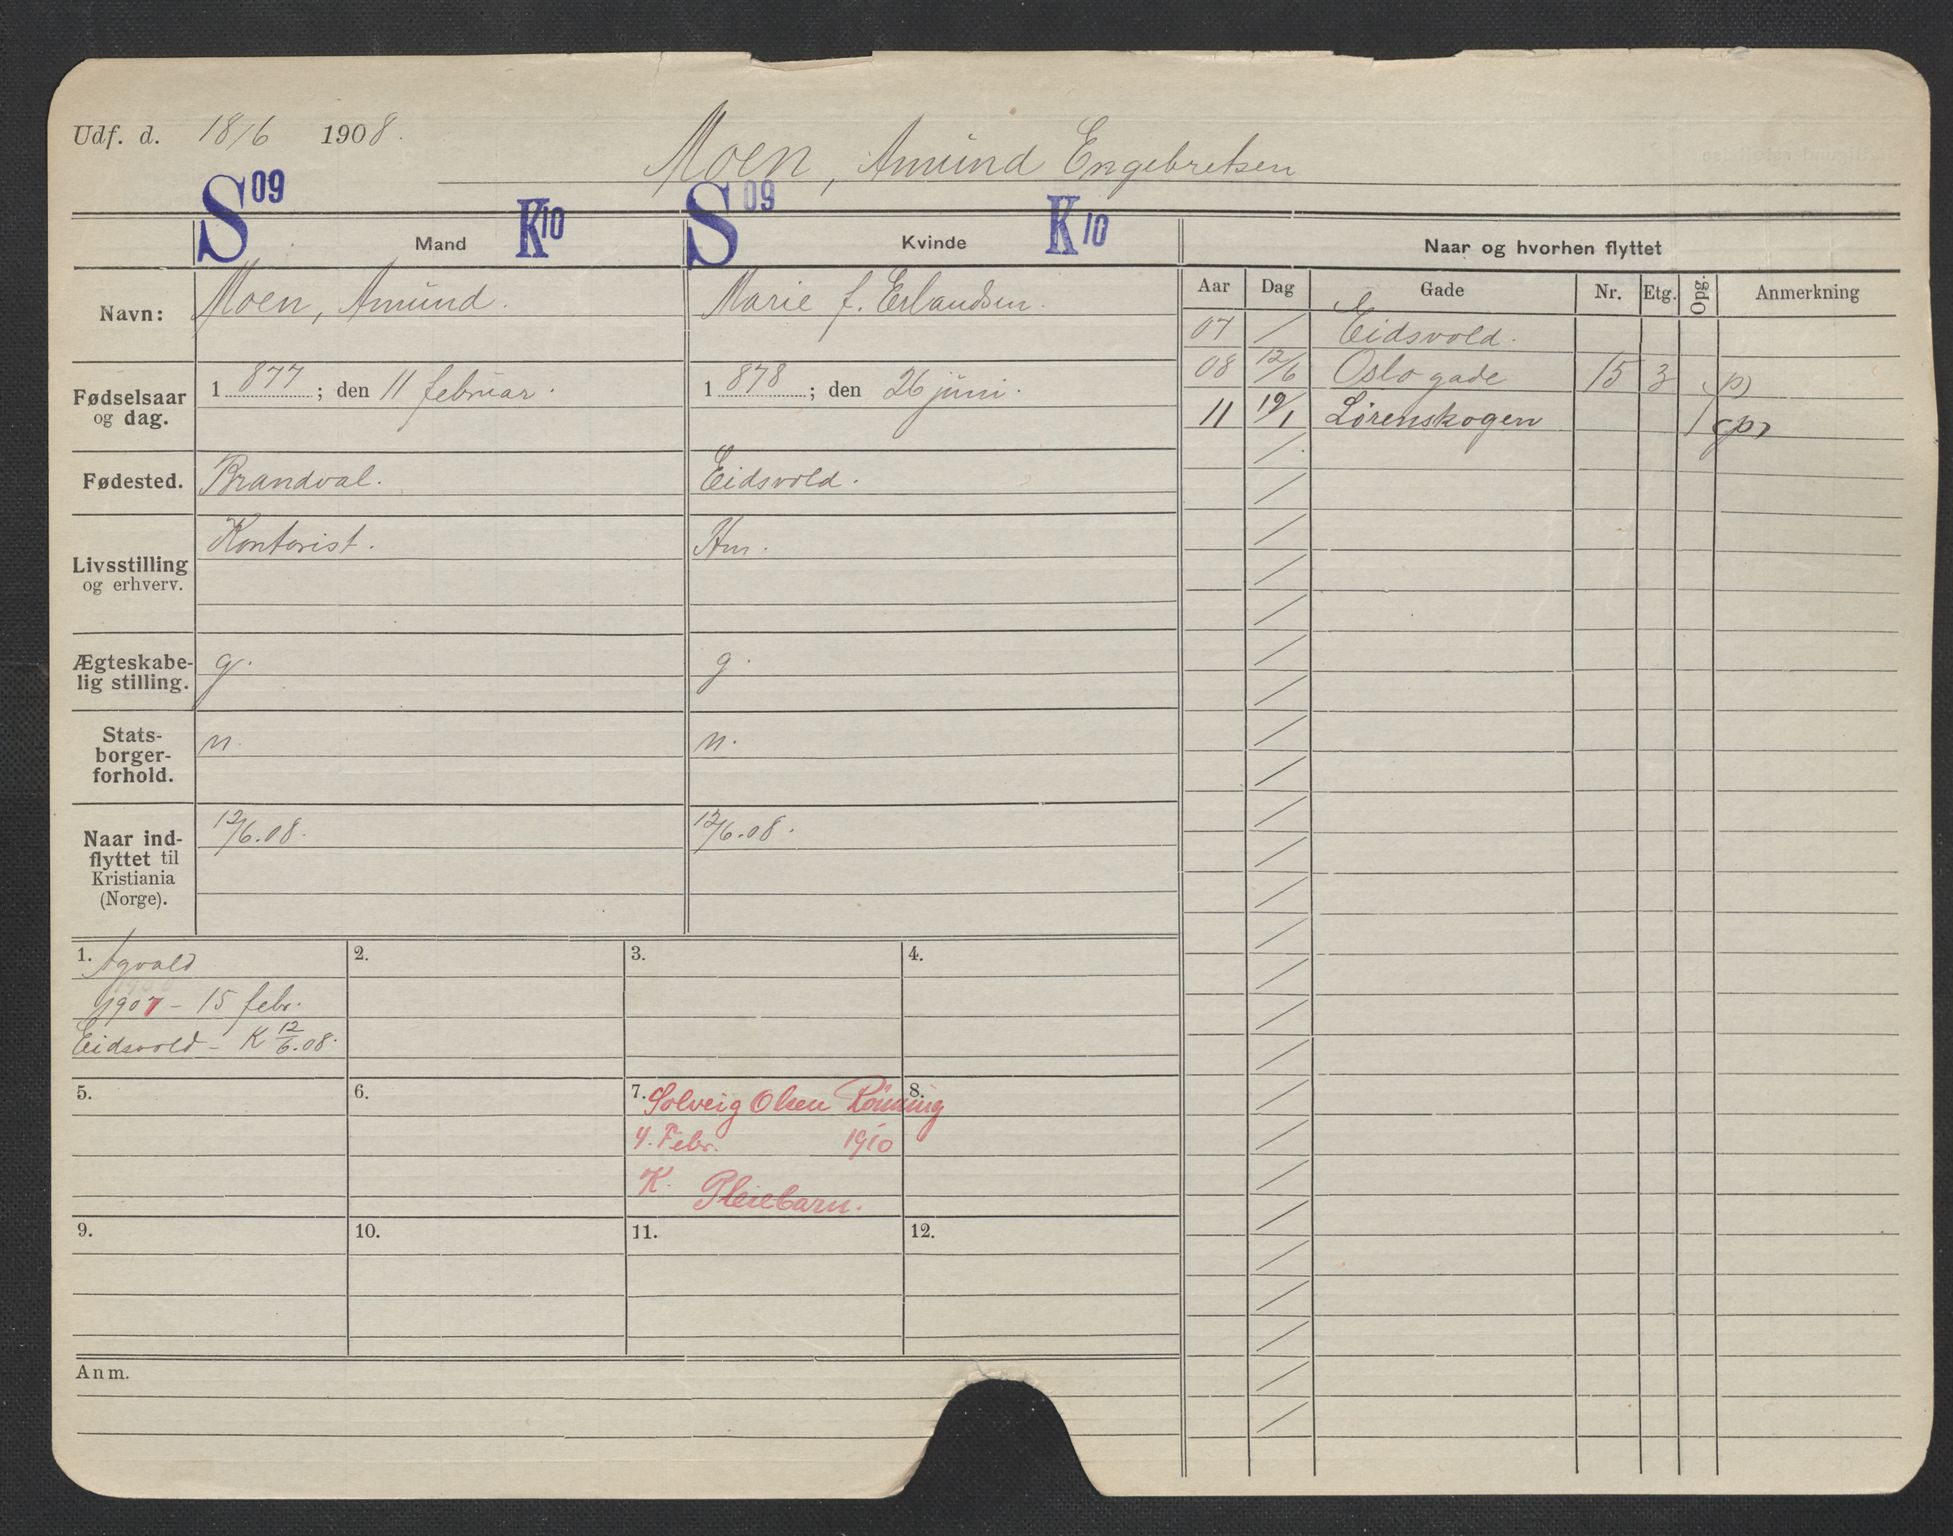 Udf. d. 18/6 1908.
Moen, Amund Engebretsen
S 09 K 10 S 09 K 10
Mand Kvinde Naar og hvorhen flyttet
Navn: Moen, Amund. Marie f. Erlandsen.
Fødselsaar og dag. 1877; den 11 februar. 1878; den 26 juni.
Fødested. Brandval. Eidsvold.
Livsstilling og erhverv. Kontorist. Hm.
Ægteskabe-
lig stilling. g. g.
Stats-
borger-
forhold. n. n.
Naar ind-
flyttet til
Kristiania
(Norge). 12/6.08. 12/6.08.
Aar Dag Gade Nr. Etg. Opg. Anmerkning
07 / Eidsvold.
08 12/6 Oslo gade 15 3 (p)
11 19/1 Lørenskogen / (p)
1. Agvald
1907 - 15 febr.
Eidsvold - K 12/6.08.
2.
3.
4.
5.
6.
7. Solveig Olsen Rönning
4. Febr. 1910
K. Pleiebarn.
8.
9.
10.
11.
12.
Anm.